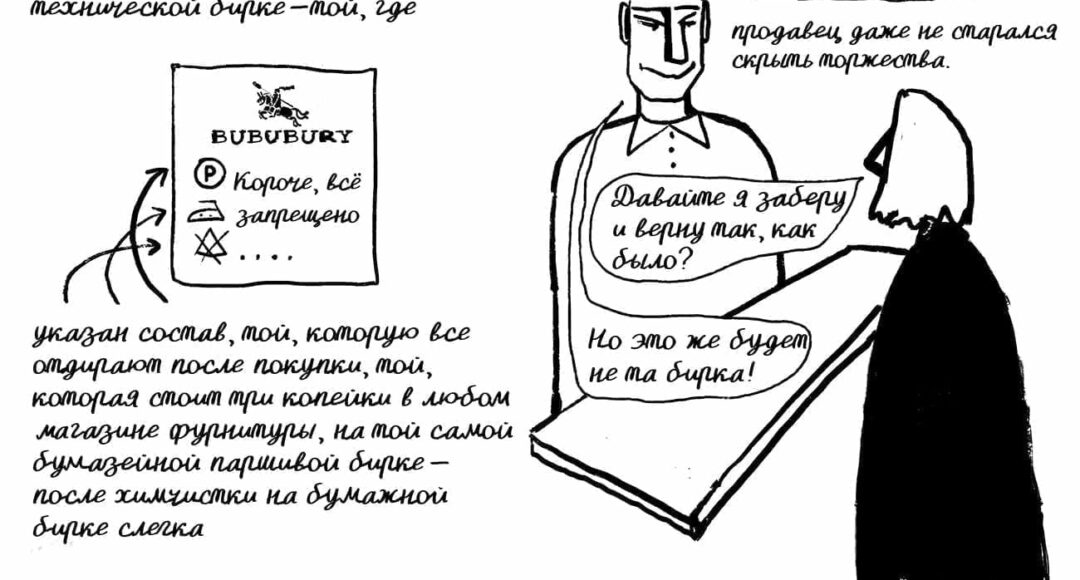 технической бирке — той, где
BUBUBURY
P Короче, всё
запрещено
....
указан состав, той, которую все
отдирают после покупки, той,
которая стоит три копейки в любом
магазине фурнитуры, на той самой
бумазейной паршивой бирке —
после химчистки на бумажной
бирке слегка
продавец даже не старался
скрыть торжества.
Давайте я заберу
и верну так, как
было?
Но это же будет
не та бирка!